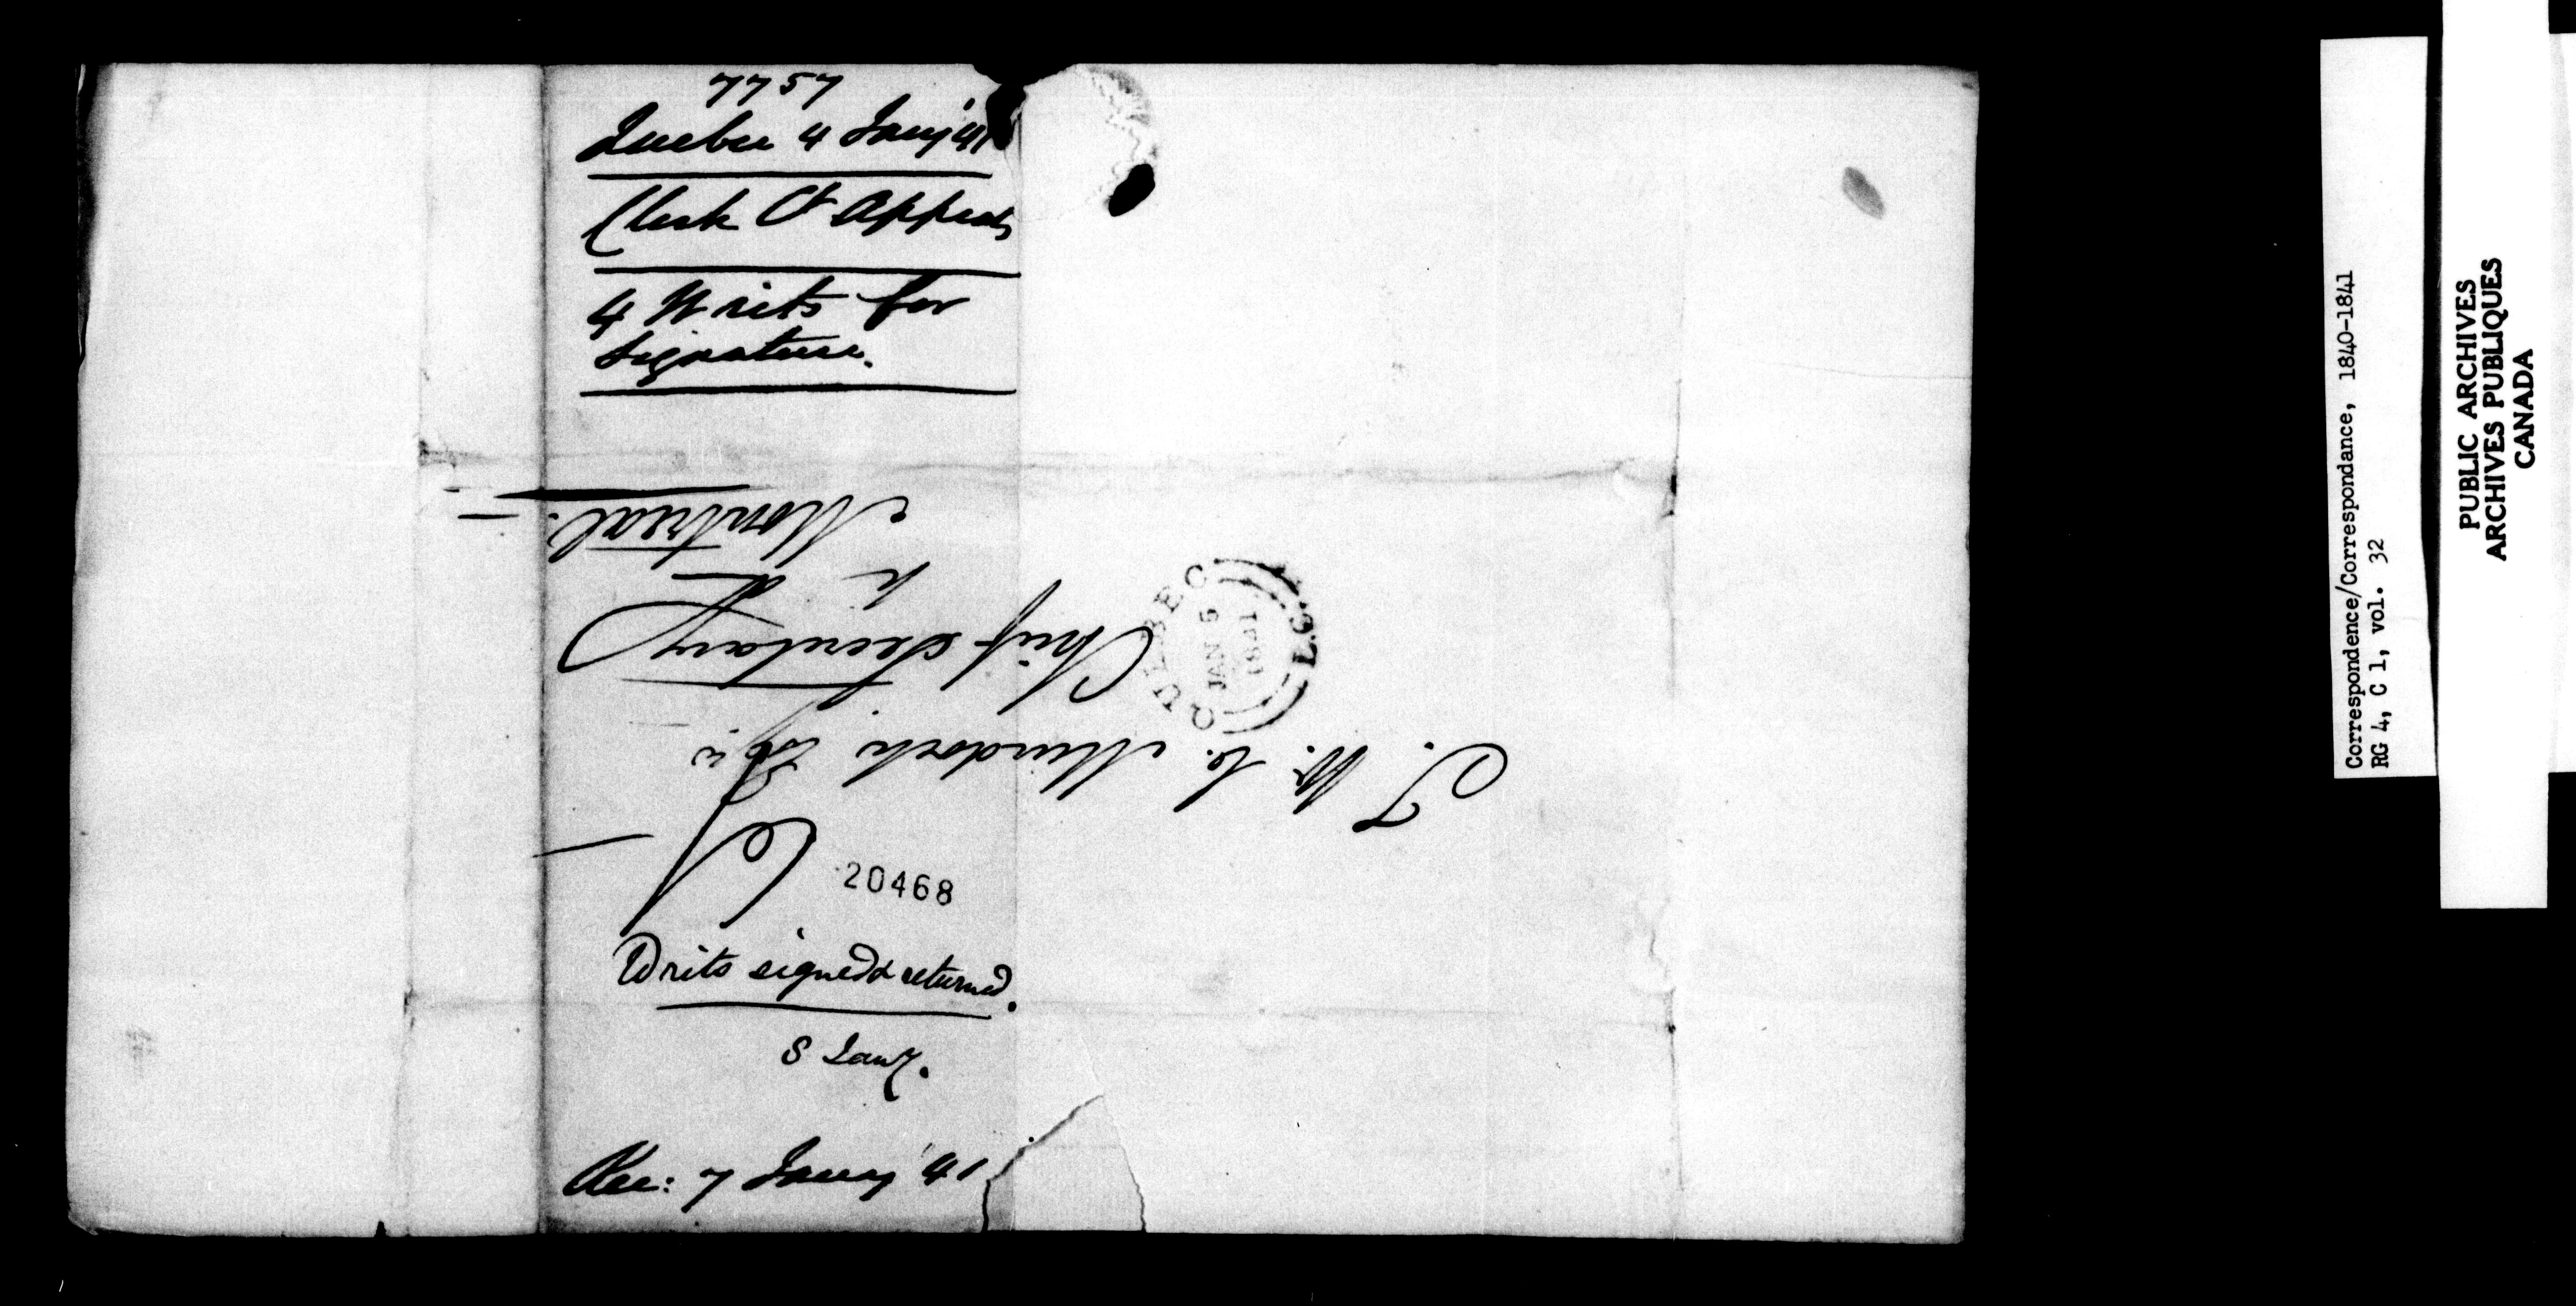 7757
Quebec 4 Jany '41
Clerk Ct Appeals
4 Writs for
Signature.
T. W. C. Murdoch Esqr
Chief Secretary
&c &c
Montreal.
QUEBEC
JAN 5
1841
L.C.
20468
Writs signed & returned.
8 Jany.
Rec: 7 Jany '41
Correspondence/Correspondance, 1840-1841
RG 4, C 1, vol. 32
PUBLIC ARCHIVES
ARCHIVES PUBLIQUES
CANADA